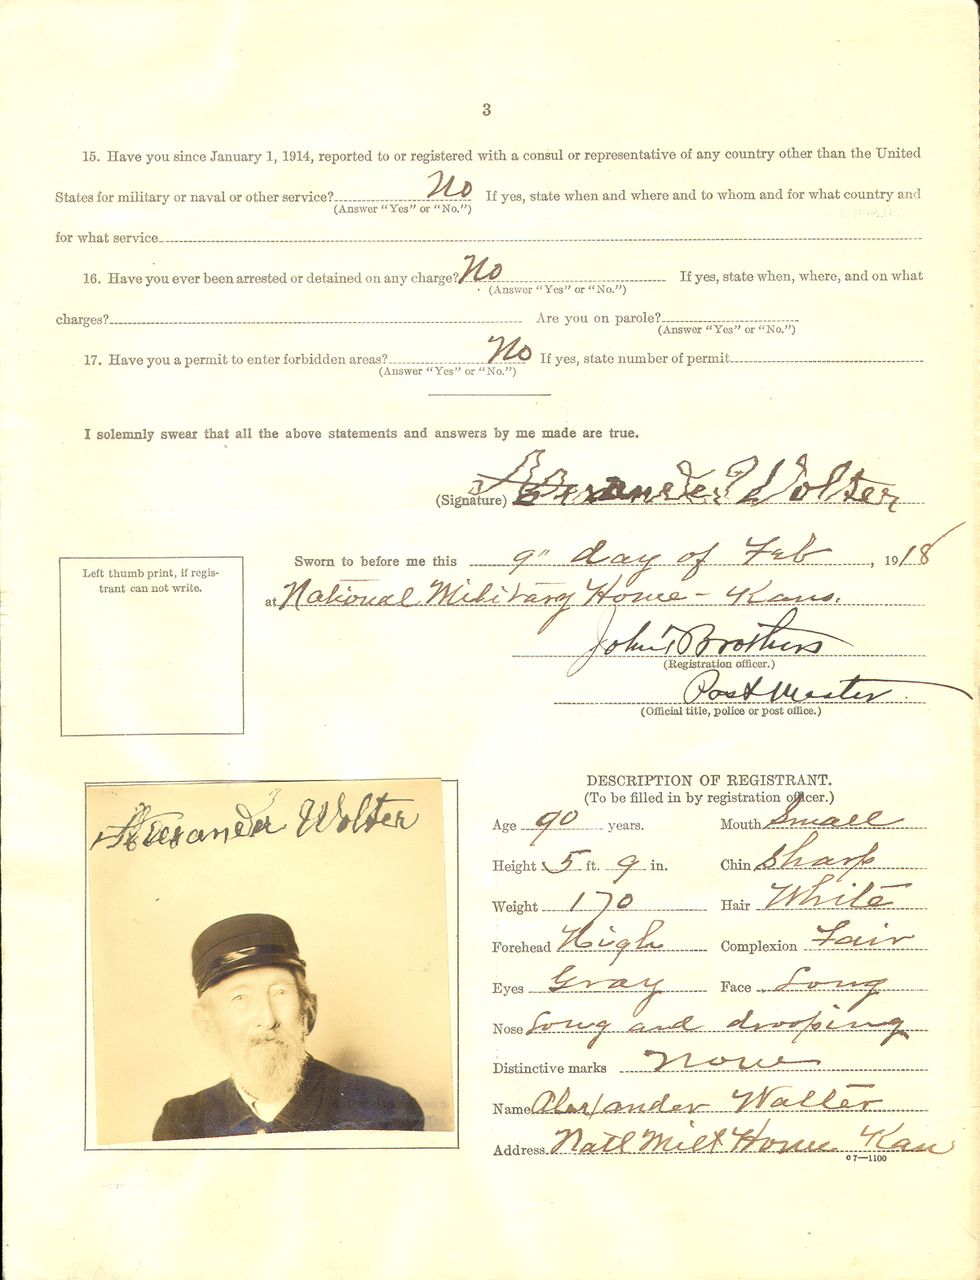 3
15. Have you since January 1, 1914, reported to or registered with a consul or representative of any country other than the United
States for military or naval or other service? No If yes, state when and where and to whom and for what country and
(Answer "Yes" or "No.")
for what service
16. Have you ever been arrested or detained on any charge? No If yes, state when, where, and on what
(Answer "Yes" or "No.")
charges? Are you on parole?
(Answer "Yes" or "No.")
17. Have you a permit to enter forbidden areas? No If yes, state number of permit
(Answer "Yes" or "No.")
I solemnly swear that all the above statements and answers by me made are true.
(Signature) Alexander Wolter
Sworn to before me this 9" day of Feb, 1918
at National Military Home - Kans.
John T Brothers
(Registration officer.)
Post Master
(Official title, police or post office.)
Left thumb print, if regis-
trant can not write.
Alexander Wolter
DESCRIPTION OF REGISTRANT.
(To be filled in by registration officer.)
Age 90 years. Mouth Small
Height 5 ft. 9 in. Chin Sharp
Weight 170 Hair White
Forehead High Complexion Fair
Eyes Gray Face Long
Nose Long and drooping
Distinctive marks None
Name Alexander Walter
Address Natl Milt Home Kan
c7—1100